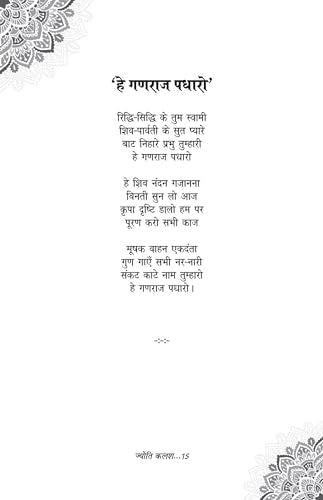 ‘हे गणराज पधारो’
रिद्धि-सिद्धि के तुम स्वामी
शिव-पार्वती के सुत प्यारे
बाट निहारे प्रभु तुम्हारी
हे गणराज पधारो
हे शिव नंदन गजानना
विनती सुन लो आज
कृपा दृष्टि डालो हम पर
पूरण करो सभी काज
मूषक वाहन एकदंता
गुण गाएँ सभी नर-नारी
संकट काटे नाम तुम्हारो
हे गणराज पधारो।
-:-:-
ज्योति कलश...15